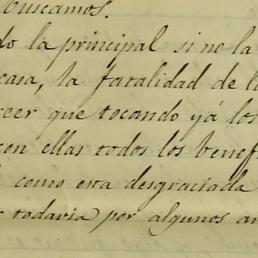 buscamos.
do la principal si no la
casa, la fatalidad de l
creer que tocando yá los
con ellas todos los benef
como esta desgraciada
todavia por algunos a